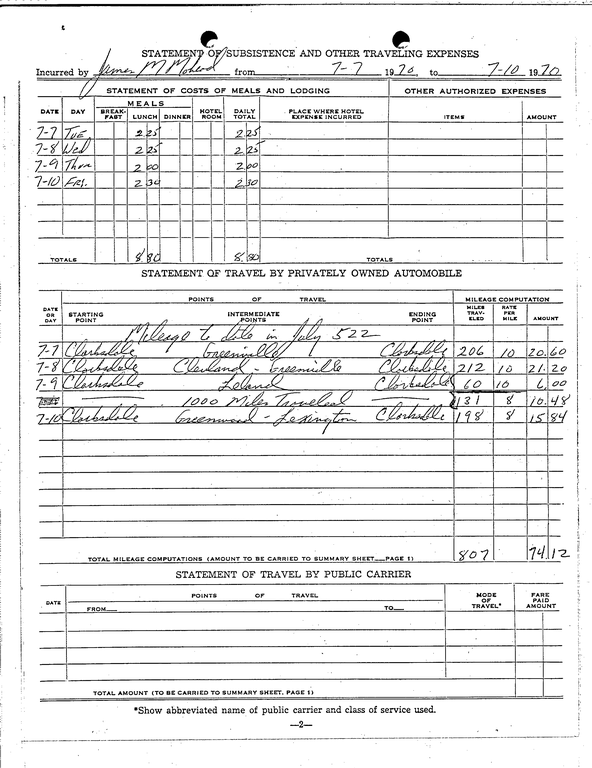 STATEMENT OF SUBSISTENCE AND OTHER TRAVELING EXPENSES
Incurred by James M from 7-7 1970 to 7-10 1970
STATEMENT OF COSTS OF MEALS AND LODGING OTHER AUTHORIZED EXPENSES
DATE DAY MEALS BREAK-FAST LUNCH DINNER HOTEL ROOM DAILY TOTAL PLACE WHERE HOTEL EXPENSE INCURRED ITEMS AMOUNT
7-7 Tue 2 25 2 25
7-8 Wed 2 25 2 25
7-9 Thur 2 00 2 00
7-10 Fri. 2 30 2 30
TOTALS 8 80 8 80 TOTALS
STATEMENT OF TRAVEL BY PRIVATELY OWNED AUTOMOBILE
DATE OR DAY POINTS OF TRAVEL MILEAGE COMPUTATION
STARTING POINT INTERMEDIATE POINTS ENDING POINT MILES TRAV-ELED RATE PER MILE AMOUNT
Mileage to date in July 522
7-7 Clarksdale Greenville Clarksdale 206 10 20.60
7-8 Clarksdale Cleveland - Greenville Clarksdale 212 10 21.20
7-9 Clarksdale Leland Clarksdale 60 10 6.00
1000 Miles Traveled 131 8 10.48
7-10 Clarksdale Greenwood - Lexington Clarksdale 198 8 15 84
TOTAL MILEAGE COMPUTATIONS (AMOUNT TO BE CARRIED TO SUMMARY SHEET PAGE 1) 807 74.12
STATEMENT OF TRAVEL BY PUBLIC CARRIER
DATE POINTS OF TRAVEL MODE OF TRAVEL* FARE PAID AMOUNT
FROM TO
TOTAL AMOUNT (TO BE CARRIED TO SUMMARY SHEET, PAGE 1)
*Show abbreviated name of public carrier and class of service used.
—2—